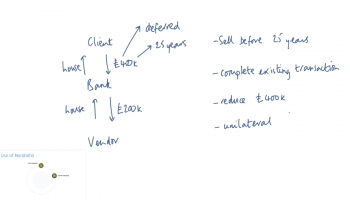 deferred
Client
25 years
house
£400k
Bank
house
£200k
Vendor
- Sell before 25 years
- complete existing transaction
- reduce £400k
- unilateral